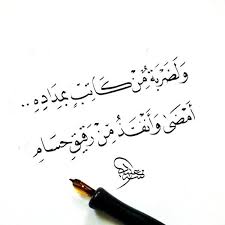 وَلَضَرْبَةٌ مِّنْ كَاتِبٍ بِمِدَادِهِ ..
أَمْضَىٰ وَأَنْفَذُ مِنْ رَقِيقِ حُسَامِ